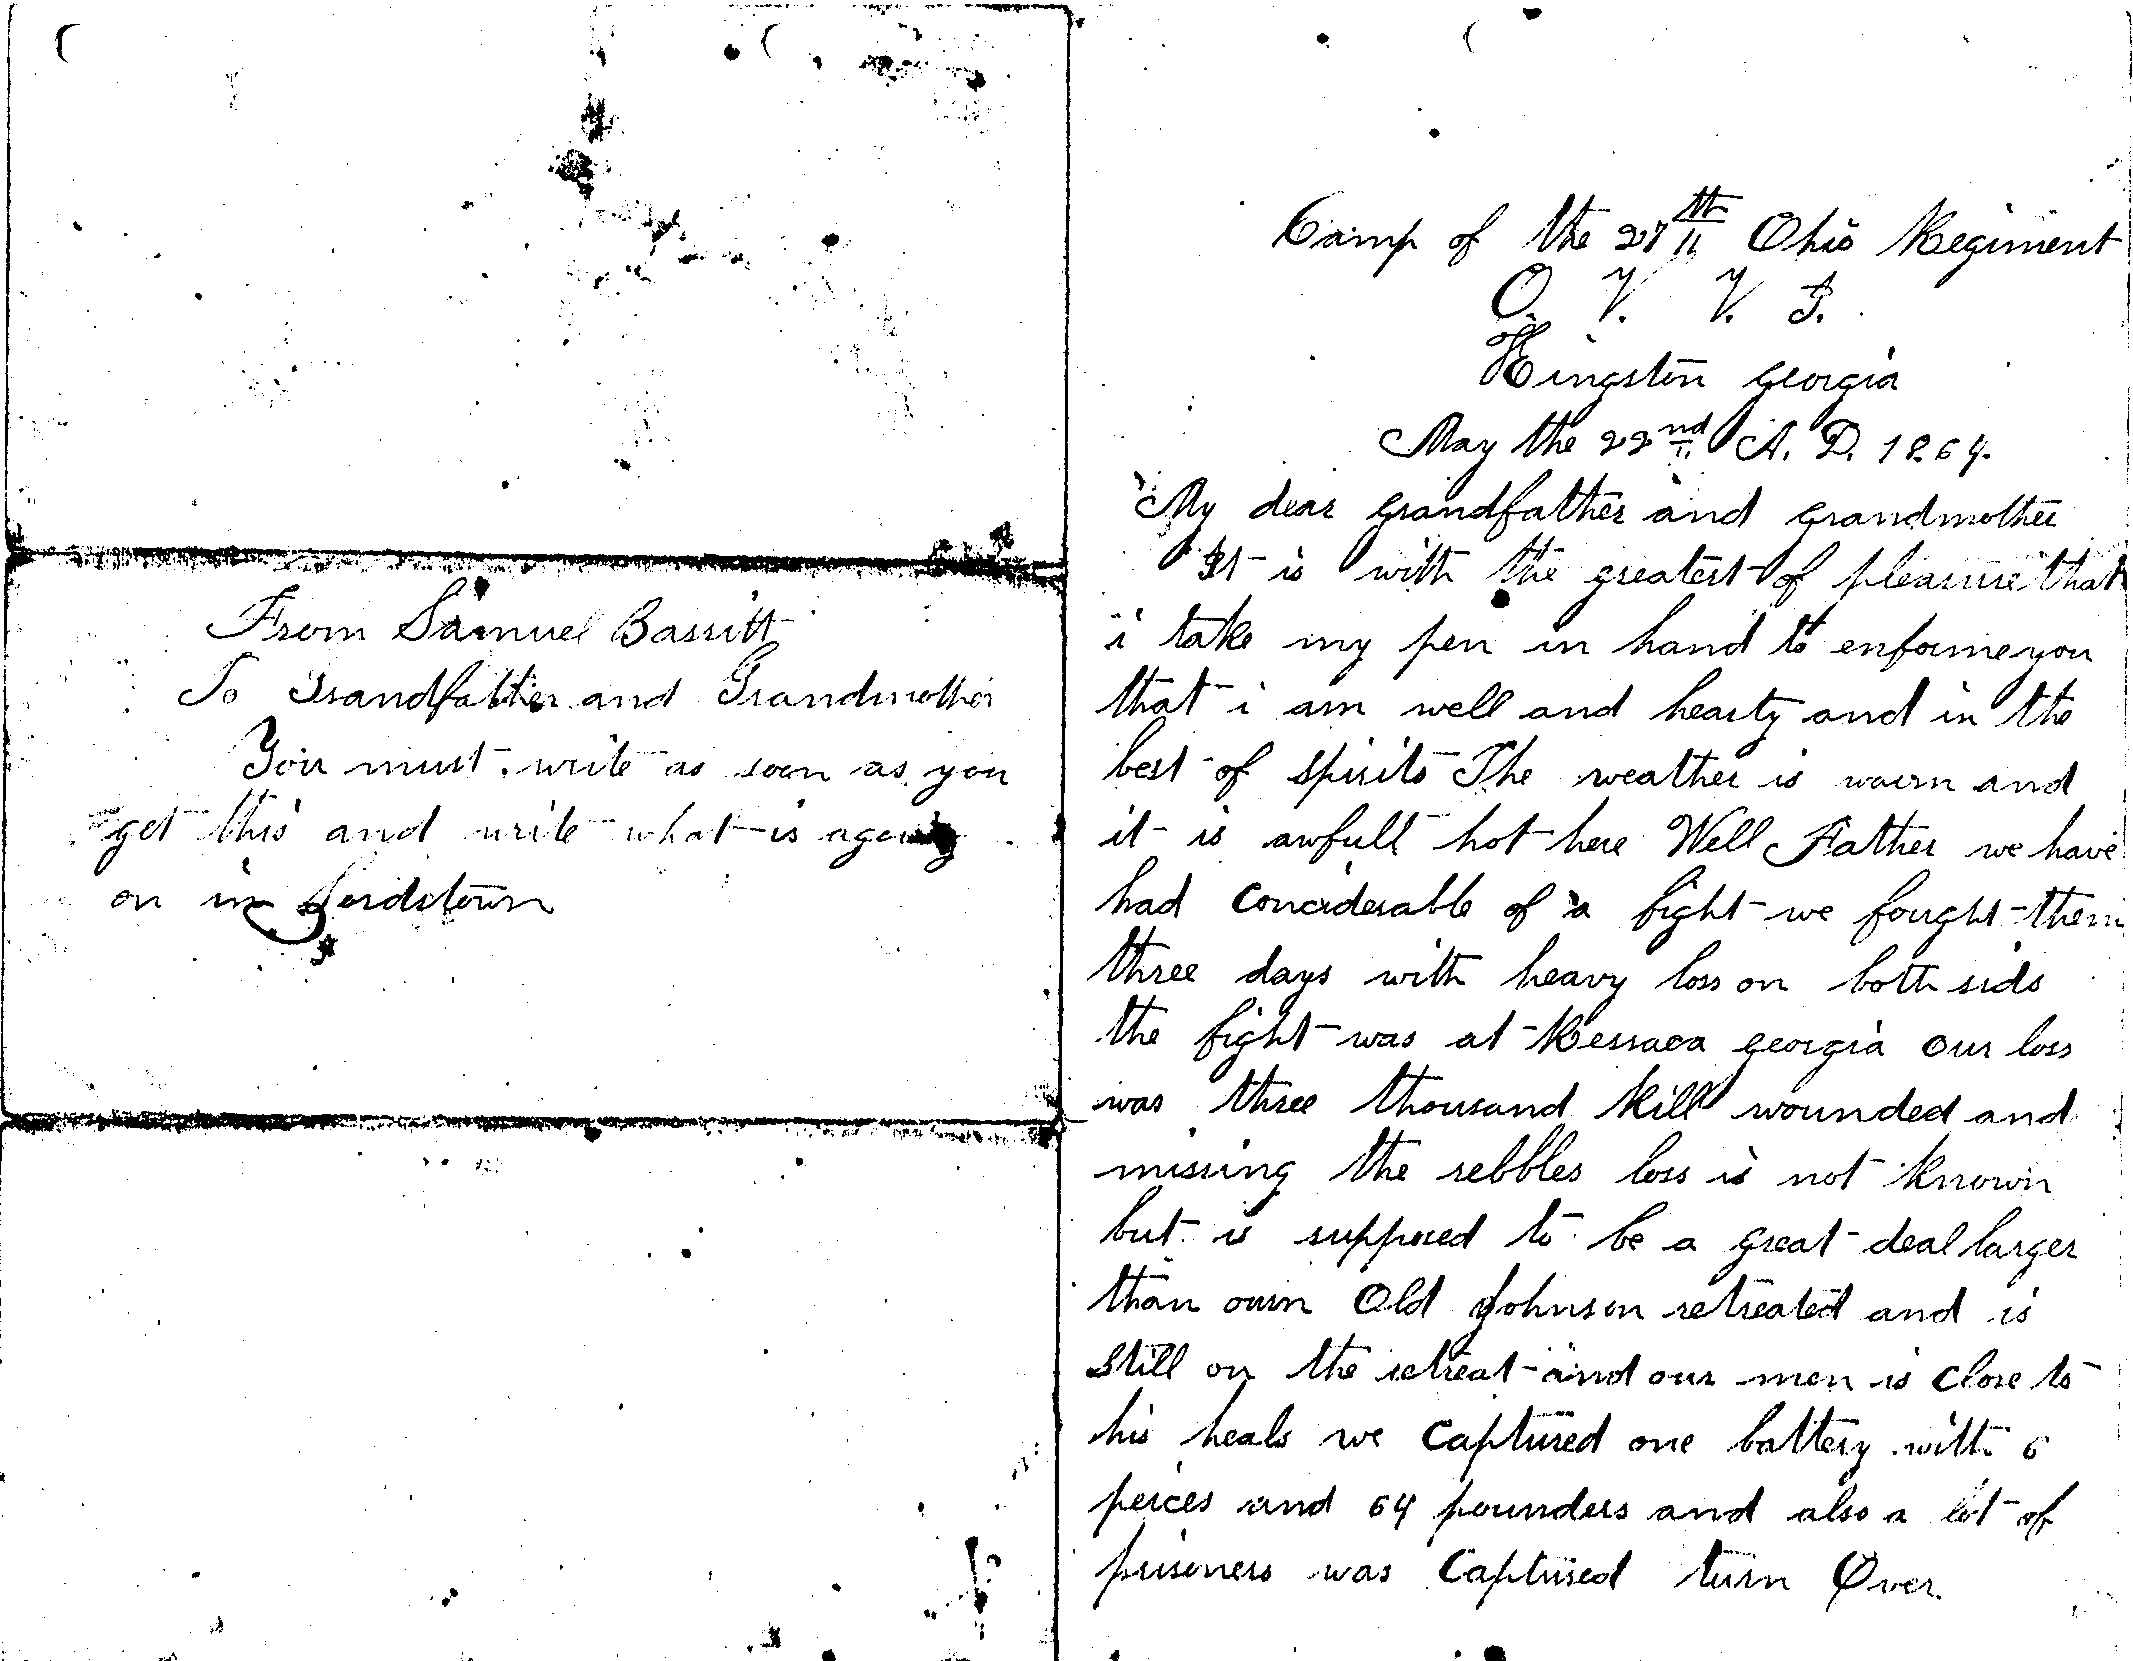 From Samuel Bassitt
To Grandfather and Grandmother
You must write as soon as you
get this and write what is
on in Lordstown
Camp of the 27th Ohio Regiment
O. V. V. I.
Kingston georgia
May the 22nd A. D. 1864.
My dear grandfather and grandmother
It is with the greatest of pleasure that
i take my pen in hand to enforme you
that i am well and hearty and in the
best of spirits The weather is warn and
it is awfull hot here Well Father we have
had conciderable of a fight we fought them
three days with heavy loss on both sids
the fight was at Ressaca georgia our loss
was three thousand kill wounded and
missing the rebbles loss is not known
but is supposed to be a great deal larger
than ourn Old Johnson retreated and is
still on the retreat and our men is close to
his heals we captured one battery with 6
peices and 64 pounders and also a lot of
prisoners was captured turn Over